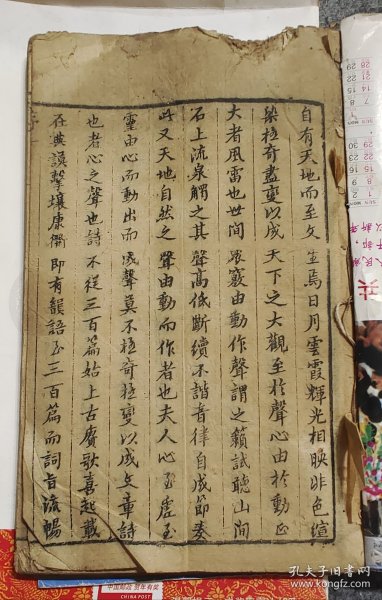 自有天地而至文生焉日月雲霞輝光相映非色絢
染極奇盡變以成天下之大觀至於聲必由於動正
大者風雷也世间眾竅由動作聲謂之籟試聽山间
石上流泉觸之其聲高低斷續不諧音律自成節奏
此又天地自然之聲由動而作者也夫人心至虛至
靈由心而動出而成聲莫不極奇極變以成文章詩
也者心之聲也詩不從三百篇始上古賡歌喜起載
在典謨擊壤康衢即有韻語至三百篇而詞旨流暢
中国邮政 贺年有奖
CHINA POST
孔夫子旧书网
www.kongfz.com